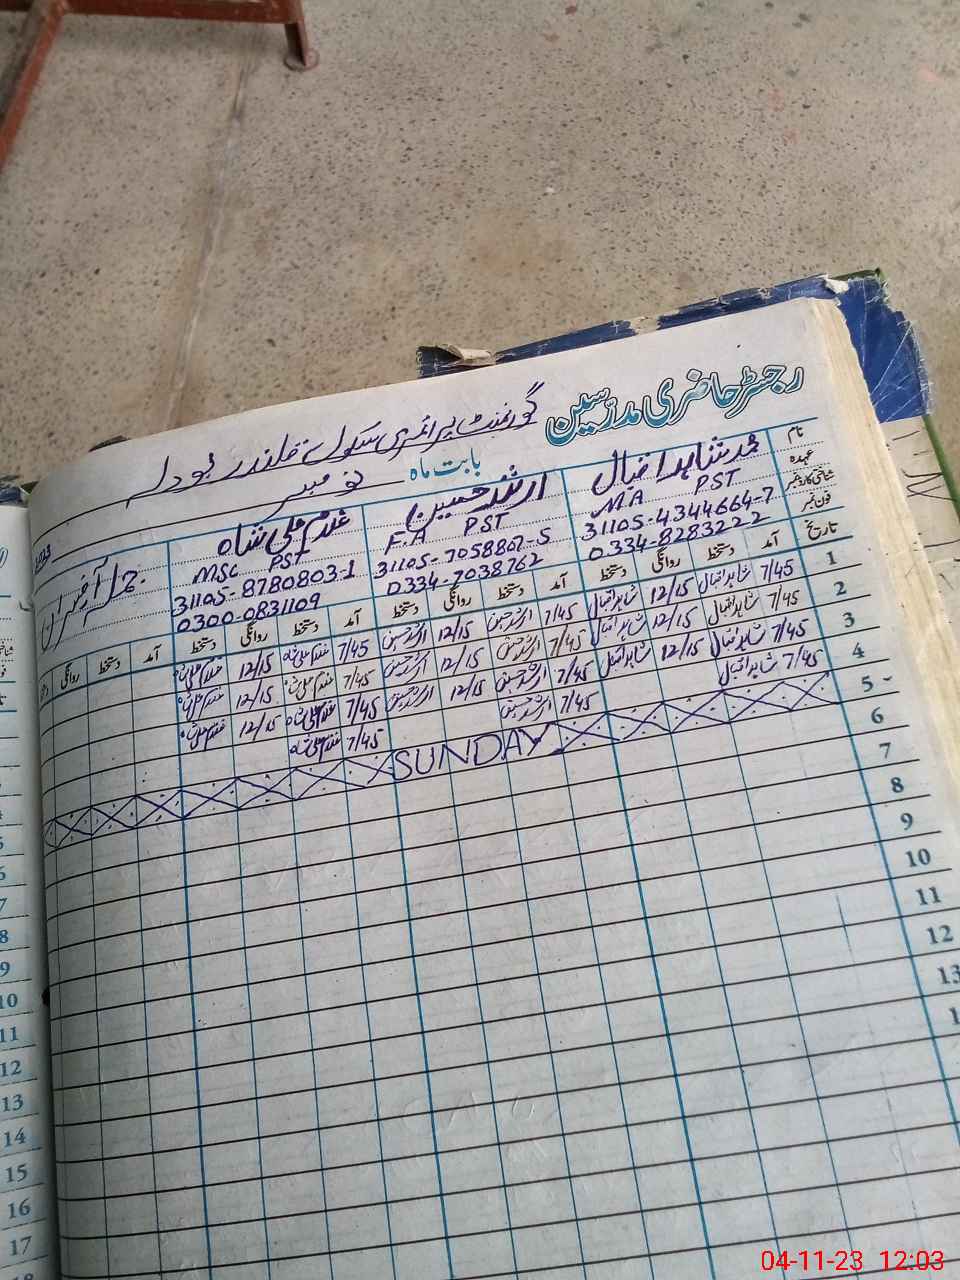 رجسٹر حاضری مدرسین گورنمنٹ پرائمری سکول قلندر بودلہ
بابت ماہ نومبر 2023
نام محمد شاہد اقبال ارشد حسین غلام علی شاہ
عہدہ M.A PST F.A PST M.Sc PST
شناختی کارڈ نمبر 31105-4344664-7 31105-7058807-5 31105-8780803-1
فون نمبر 0334-8283222 0334-7038762 0300-0831109
تاریخ آمد دستخط روانگی دستخط آمد دستخط روانگی دستخط آمد دستخط روانگی دستخط آمد دستخط روانگی
1 7/45 شاہد اقبال 12/15 شاہد اقبال 7/45 ارشد حسین 12/15 ارشد حسین 7/45 غلام علی شاہ 12/15 غلام علی شاہ
2 7/45 شاہد اقبال 12/15 شاہد اقبال 7/45 ارشد حسین 12/15 ارشد حسین 7/45 غلام علی شاہ 12/15 غلام علی شاہ
3 7/45 شاہد اقبال 12/15 شاہد اقبال 7/45 ارشد حسین 12/15 ارشد حسین 7/45 غلام علی شاہ 12/15 غلام علی شاہ
4 7/45 شاہد اقبال 7/45 ارشد حسین 7/45 غلام علی شاہ
5 SUNDAY
6
7
8
9
10
11
12
13
8
9
10
11
12
13
14
15
16
17
18
04-11-23 12:03